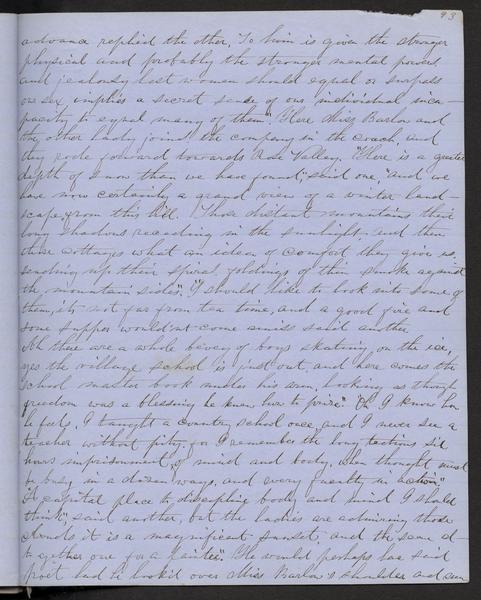 93
advance replied the other, To him is given the stronger
physical and probably the stronger mental powers
and jealousy lest women should equal or surpass
our sex, implies a secret sense of our individual inca-
pacity to equal many of them". Here Miss Barlow and
the other ladies joined the company in the coach, and
they rode forward towards Rose Valley. "There is a greater
depth of snow than we have found", said one "and we
have now certainly a grand view of a winter land-
scape, from this hill. Those distant mountains their
long shadows receeding in the sunlight, and then
those cottages what an idea of comfort they give us
sending up their spiral foldings of thin smoke against
the mountain sides". "I should like to look into some of
them, it's not far from tea time, and a good fire and
some supper wouldn't come amiss said another.
Ah there are a whole bevy of boys skating on the ice,
yes the village school is just out, and here comes the
school master book under his arm, looking as though
freedom was a blessing he knew how to prize". Oh I know how
he feels, I taught a country school once, and I never see a
teacher without pity, for I remember the long tedious six
hours imprisonment of mind and body, when thought must
be busy in a dozen ways, and every faculty in action".
"A capital place to discipline body and mind I should
think", said another, but the ladies are admiring those
clouds it is a magnificent sunset, and the scene al-
together one for a painter". He would perhaps have said
poet had he look'd over Miss Barlow's shoulder and seen